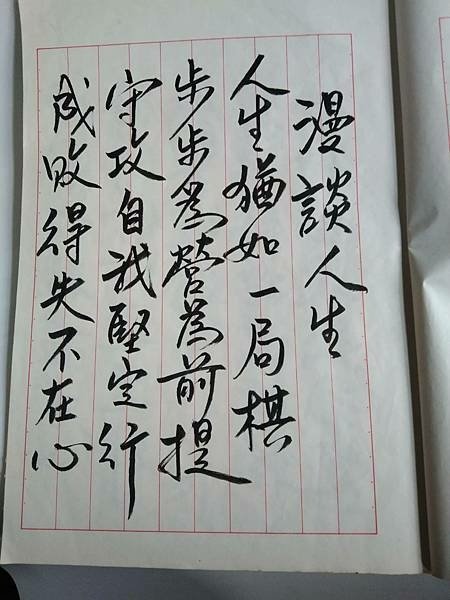 漫談人生
人生猶如一局棋
步步為營為前提
守攻自我堅定行
成敗得失不在心